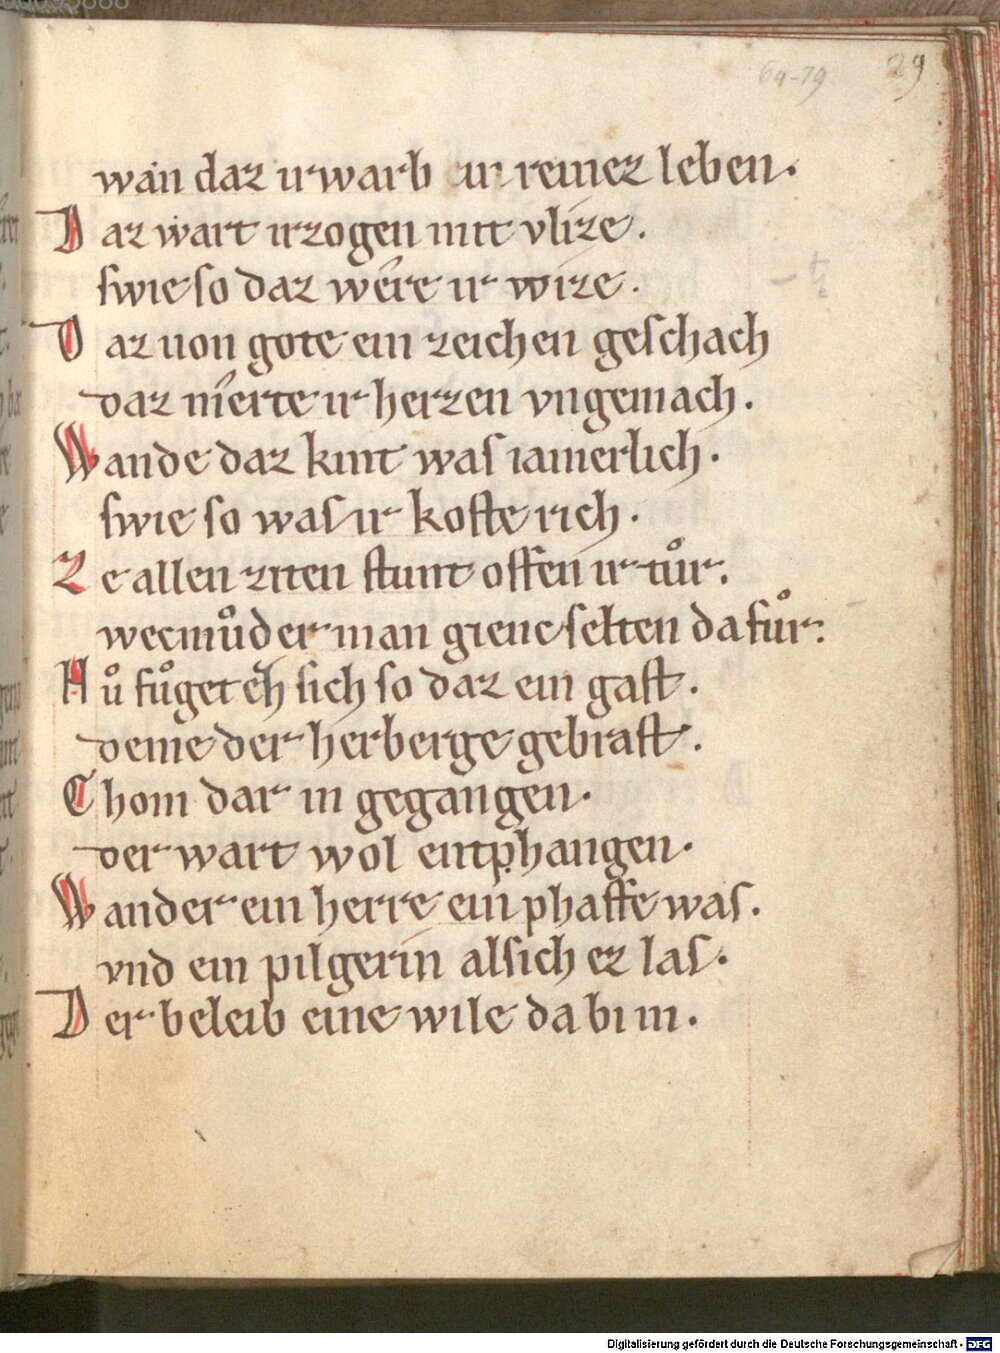 64-79 29
wan daz irwarb ir reinez leben.
Daz wart irzogen mit vlize.
swie so daz were ir wize.
Daz uon gote ein zeichen geschach
daz merte ir herzen vngemach.
Wande daz kint was iamerlich.
swie so was ir koste rich.
Ze allen ziten stunt offen ir tuͦr.
wecmuͦder man gienc selten da fuͦr.
Nuͦ fuͦget eh sich so daz ein gast.
deme der herberge gebrast.
Chom dar in gegangen.
der wart wol entphangen.
Wander ein herre ein phaffe was.
vnd ein pilgerin alsich ez las.
Der beleib eine wile da bi in.
Digitalisierung gefördert durch die Deutsche Forschungsgemeinschaft - DFG